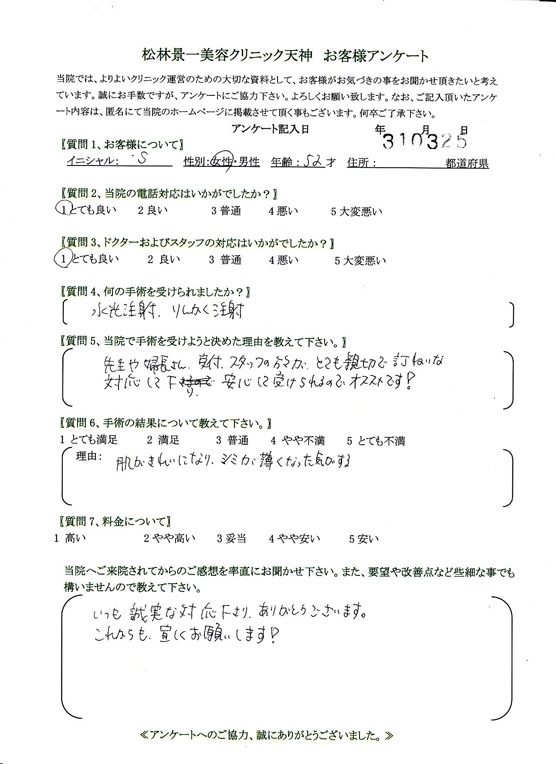 松林景一美容クリニック天神　お客様アンケート
当院では、よりよいクリニック運営のための大切な資料として、お客様がお気づきの事をお聞かせ頂きたいと考え
ています。誠にお手数ですが、アンケートにご協力下さい。よろしくお願い致します。なお、ご記入頂いたアンケ
ート内容は、匿名にて当院のホームページに掲載させて頂く事もございます。何卒ご了承下さい。
アンケート記入日　年　月　日
310325
〖質問1、お客様について〗
イニシャル：S　性別：女性・男性　年齢：52才　住所：　都道府県
〖質問2、当院の電話対応はいかがでしたか？〗
1とても良い　2 良い　3 普通　4 悪い　5 大変悪い
〖質問3、ドクターおよびスタッフの対応はいかがでしたか？〗
1とても良い　2 良い　3 普通　4 悪い　5 大変悪い
〖質問4、何の手術を受けられましたか？〗
水光注射、りんかく注射
〖質問5、当院で手術を受けようと決めた理由を教えて下さい。〗
先生や婦長さん、受付、スタッフの方々が、とても親切で丁ねいな
対応して下さり、安心して受けられるのでオススメです！
〖質問6、手術の結果について教えて下さい。〗
1 とても満足　2 満足　3 普通　4 やや不満　5 とても不満
理由：肌がきれいになり、シミが薄くなった気がする
〖質問7、料金について〗
1 高い　2 やや高い　3 妥当　4 やや安い　5 安い
当院へご来院されてからのご感想を率直にお聞かせ下さい。また、要望や改善点など些細な事でも
構いませんので教えて下さい。
いつも誠実な対応下さり、ありがとうございます。
これからも、宜しくお願いします！
≪アンケートへのご協力、誠にありがとうございました。≫